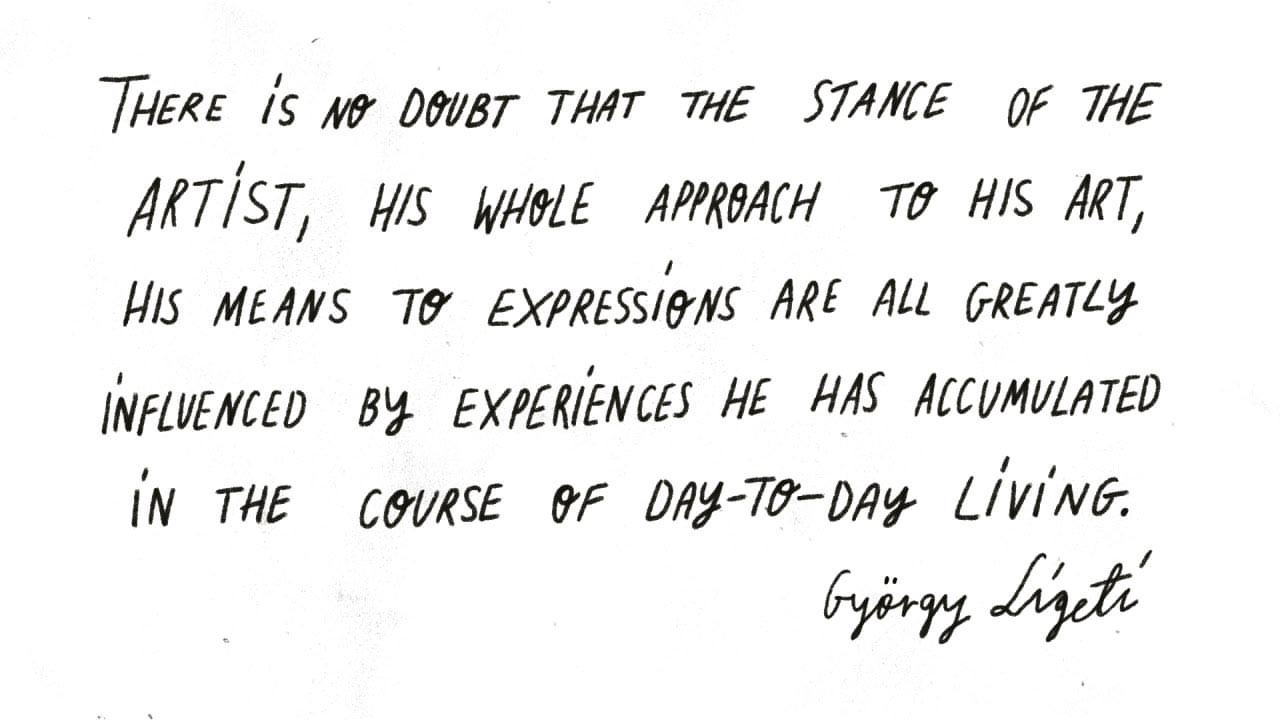 THERE iS NO DOUBT THAT THE STANCE OF THE
ARTiST, HIS WHOLE APPROACH TO HIS ART,
HIS MEANS TO EXPRESSiONS ARE ALL GREATLY
iNFLUENCED BY EXPERiENCES HE HAS ACCUMULATED
iN THE COURSE OF DAY-TO-DAY LiViNG.
György Ligeti